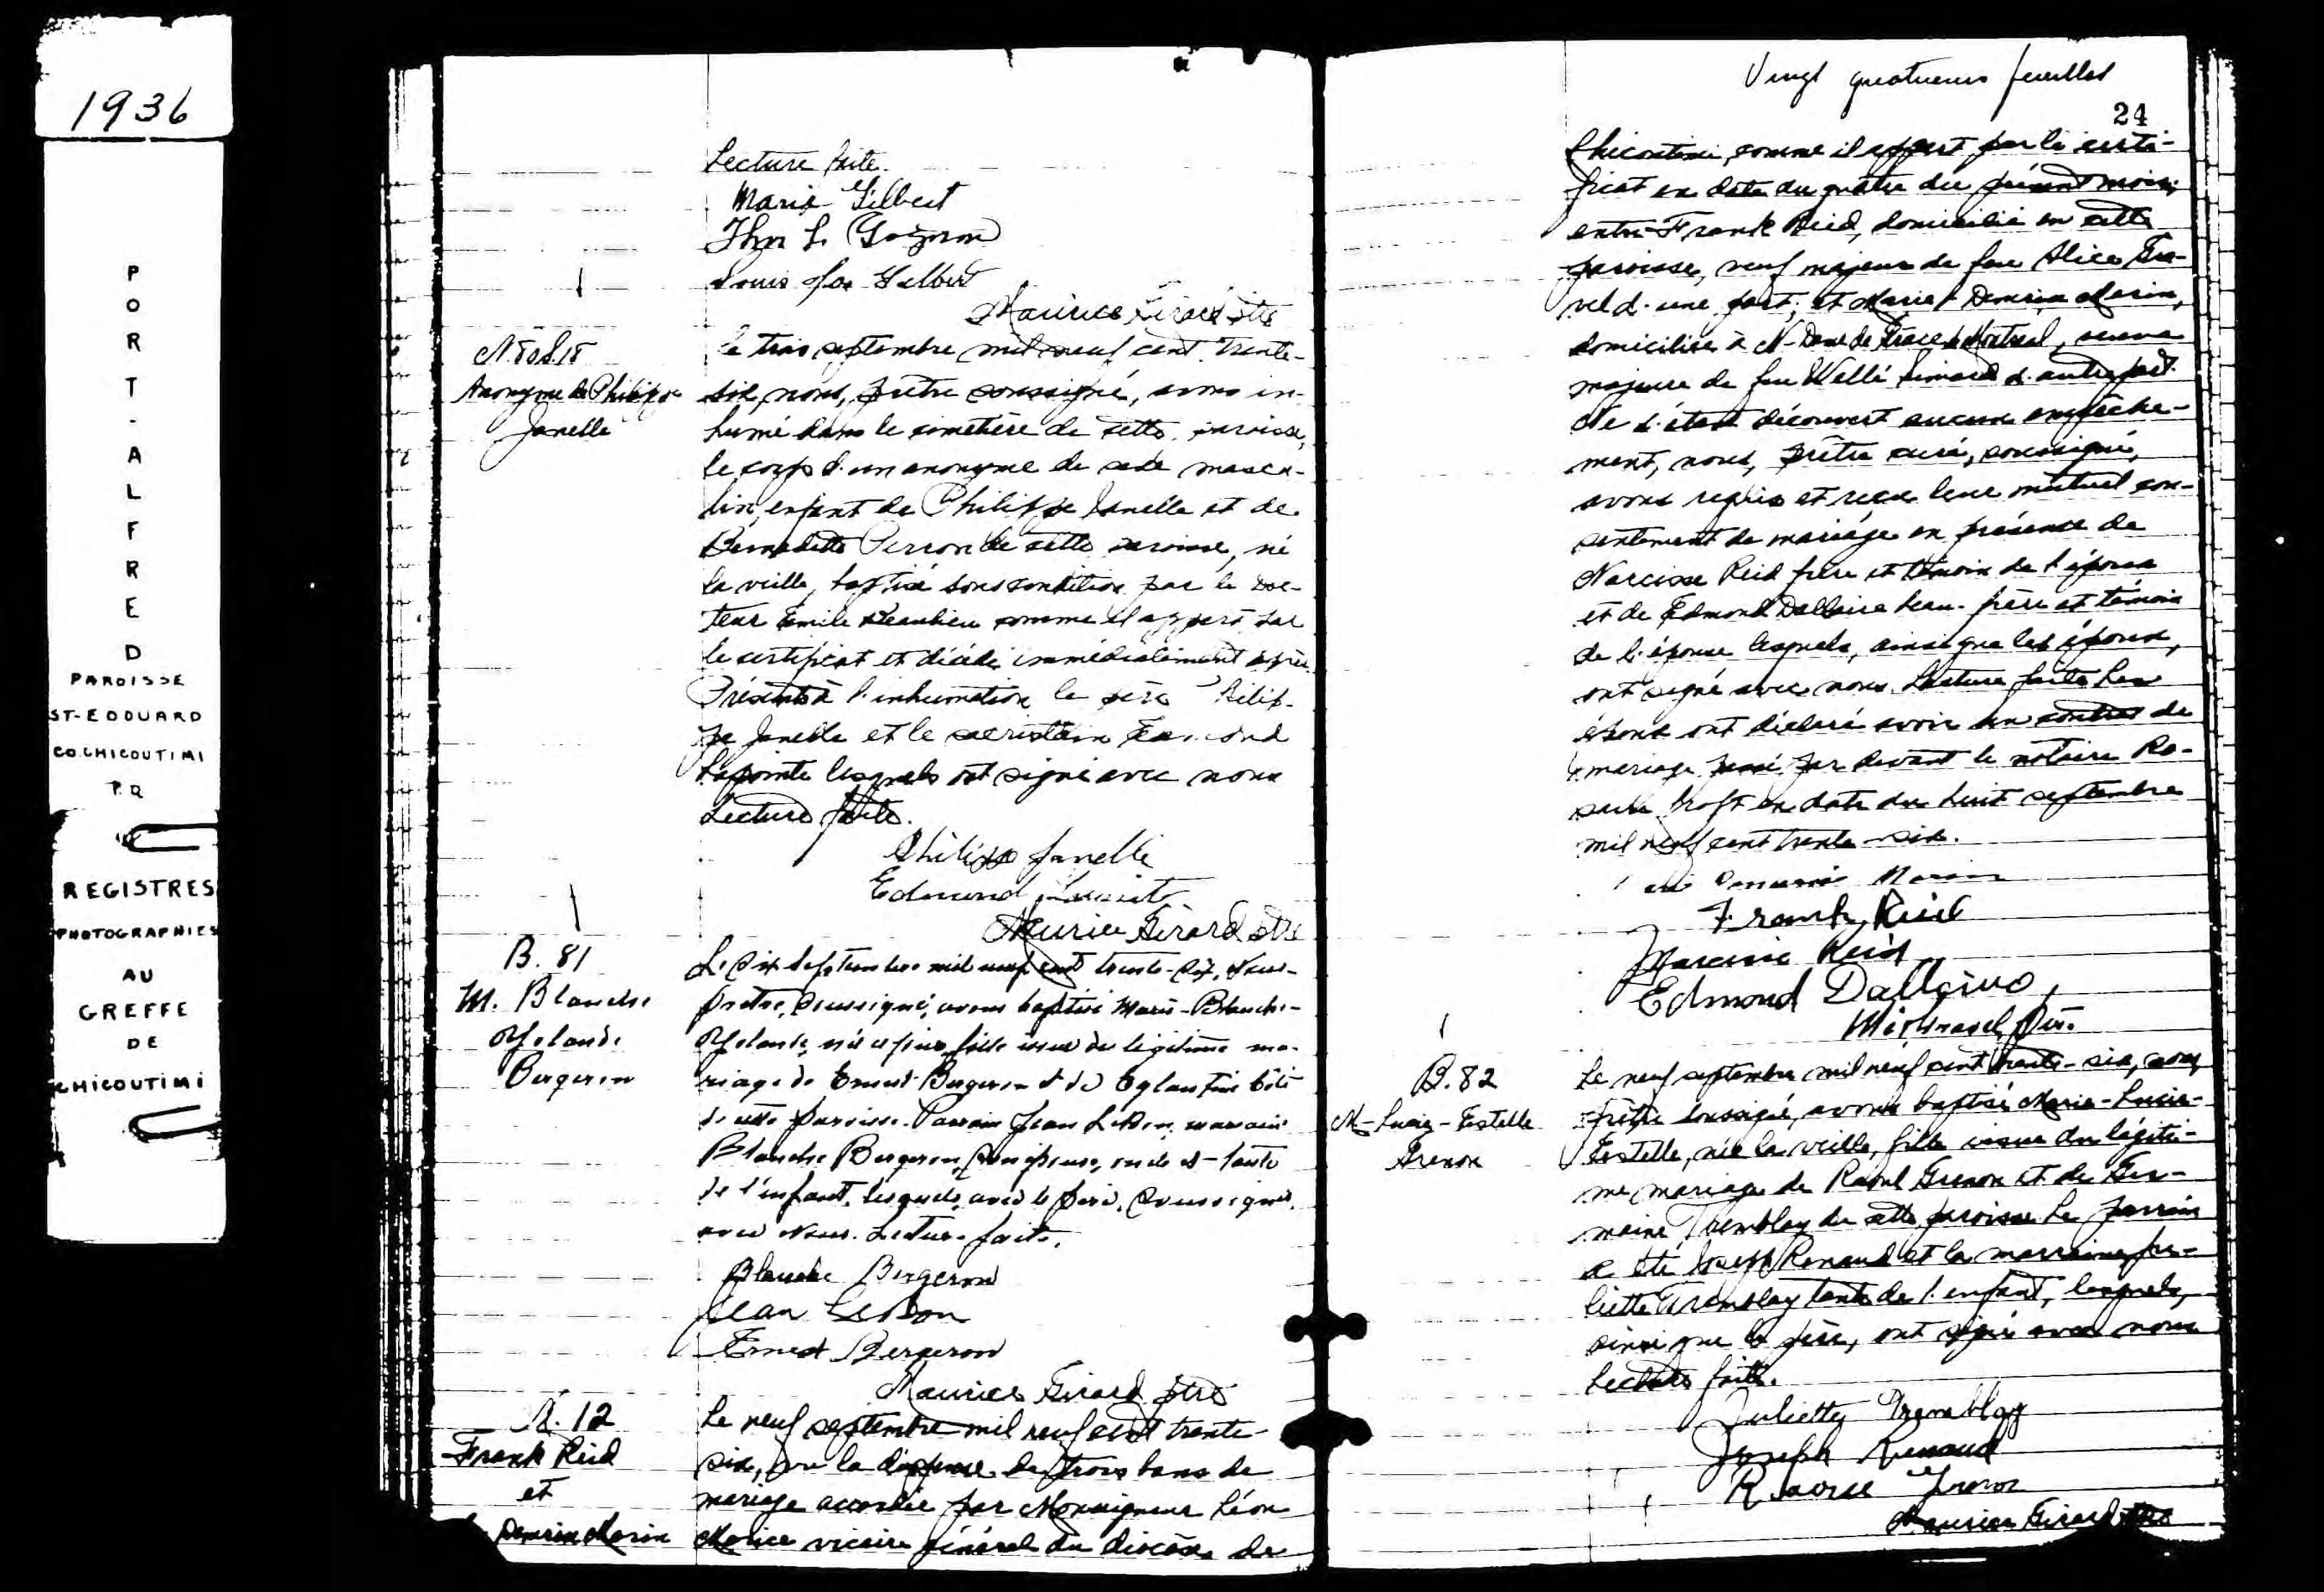 1936
PORT-ALFRED
PAROISSE
ST-EDOUARD
CO.CHICOUTIMI
P.Q
REGISTRES
PHOTOGRAPHIES
AU
GREFFE
DE
CHICOUTIMI
Lecture faite.
Maria Gilbert
Ths L. Gagnon
Louis Jos Gilbert
Maurice Girard ptre
Anonyme de Philippe
Janelle
le trois septembre mil neuf cent trente-
six, nous, prêtre soussigné, avons in-
humé dans le cimetière de cette paroisse,
le corps d'un anonyme de sexe mascu-
lin, enfant de Philippe Janelle et de
Bernadette Perron de cette paroisse, né
la veille, baptisé sous condition par le doc-
teur Emile Beaulieu comme il appert par
le certificat et décédé immédiatement après
Présents à l'inhumation le père Philip-
pe Janelle et le sacristain Edmond
Lapointe lesquels ont signé avec nous
Lecture faite.
Philippe Janelle
Edmond Lapointe
Maurice Girard ptre
B. 81
M. Blanche
Yolande
Bergeron
Le six septembre mil neuf cent trente-six, Nous-
prêtre, soussigné, avons baptisé Marie-Blanche-
Yolande, née ce jour, fille issue du légitime ma-
riage de Ernest Bergeron et de Eglantine Côté
de cette paroisse. Parrain Jean LeBon, marraine
Blanche Bergeron, son épouse, oncle et tante
de l'enfant, lesquels, avec le père, soussignés
avec Nous. Lecture faite.
Blanche Bergeron
Jean LeBon
Ernest Bergeron
Maurice Girard ptre
M. 12
Frank Reid
et
Demerise Morin
Le neuf septembre mil neuf cent trente-
six, vu la dispense de trois bans de
mariage accordée par Monseigneur Léon
Morice vicaire général du diocèse de
Vingt quatrième feuillet
24
Chicoutimi, comme il appert par le certi-
ficat en date du quatre du présent mois;
entre Frank Reid, domicilié en cette
paroisse, veuf majeur de feue Alice Gra-
vel d'une part; et Marie Demerise Morin,
domiciliée à N-Dame de Grâce de Montréal, veuve
majeure de feu Simard d'autre part.
Ne s'étant découvert aucun empêche-
ment, nous, prêtre curé, soussigné,
avons requis et reçu leur mutuel con-
sentement de mariage en présence de
Narcisse Reid frère et témoin de l'époux
et de Edmond Dallaire beau-frère et témoin
de l'épouse lesquels, ainsi que les époux,
ont signé avec nous. Lecture faite Les
époux ont déclaré avoir un contrat de
mariage passé par devant le notaire
en date du huit septembre
mil neuf cent trente-six.
Morin
Frank Reid
Narcisse Reid
Edmond Dallaire
B. 82
M-Lucie-Estelle
Grenon
Le neuf septembre mil neuf cent trente-six, nous,
prêtre soussigné, avons baptisé Marie-Lucie-
Estelle, née la veille, fille issue du légiti-
me mariage de Raoul Grenon et de Ger-
maine Tremblay de cette paroisse. Le parrain
a été Joseph Renaud et la marraine Ju-
liette Tremblay tante de l'enfant, lesquels,
ainsi que le père, ont signé avec nous
Lecture faite.
Juliette Tremblay
Joseph Renaud
Raoul Grenon
Maurice Girard ptre